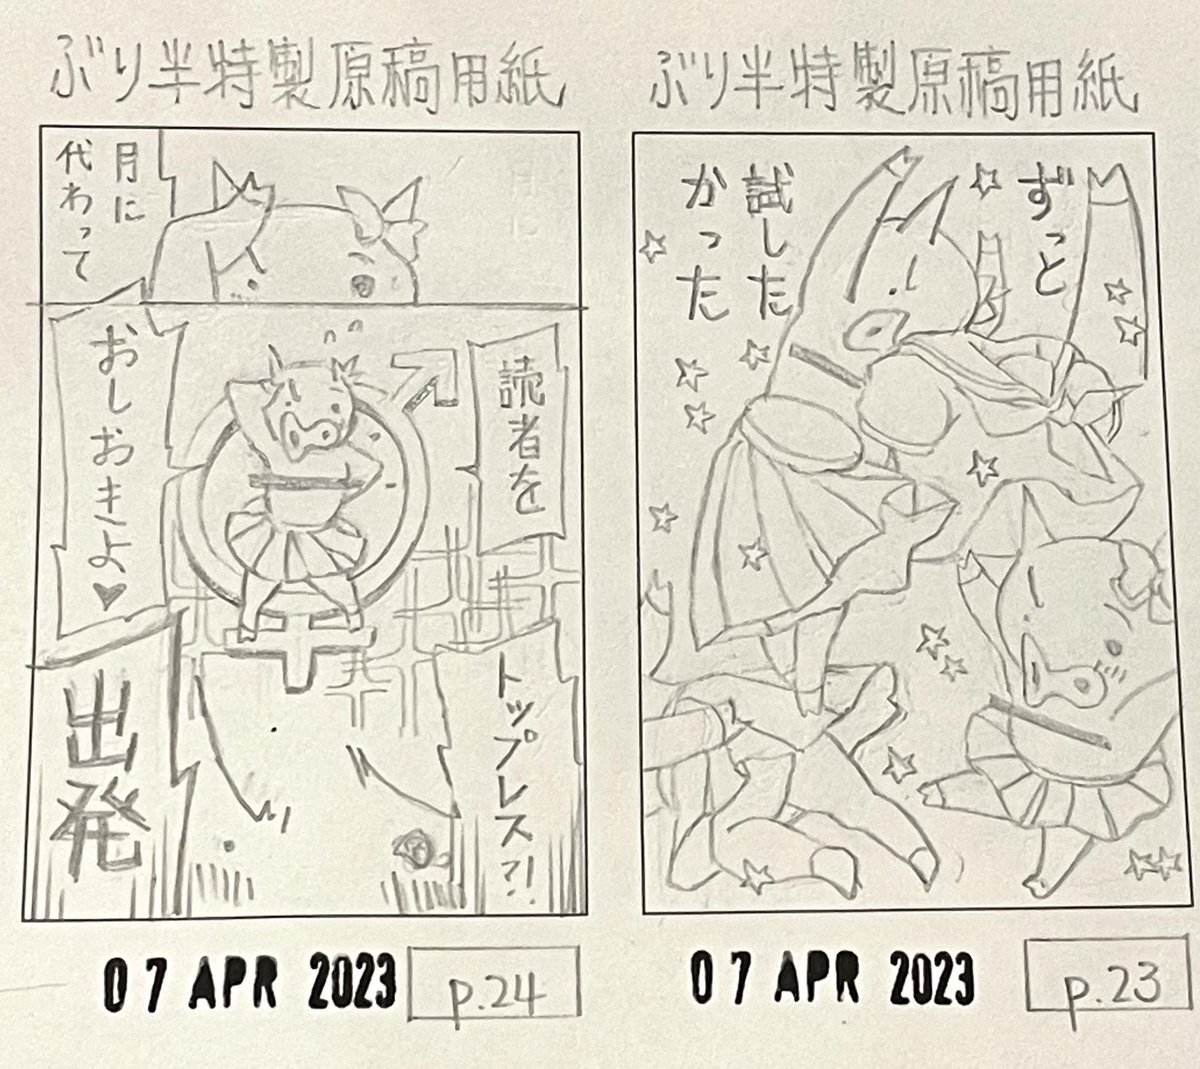 ぶり半特製原稿用紙
ずっと
試した
かった
07 APR 2023
p.23
ぶり半特製原稿用紙
月に
代わって
読者を
おしおきよ♥
トップレス?!
出発
07 APR 2023
p.24